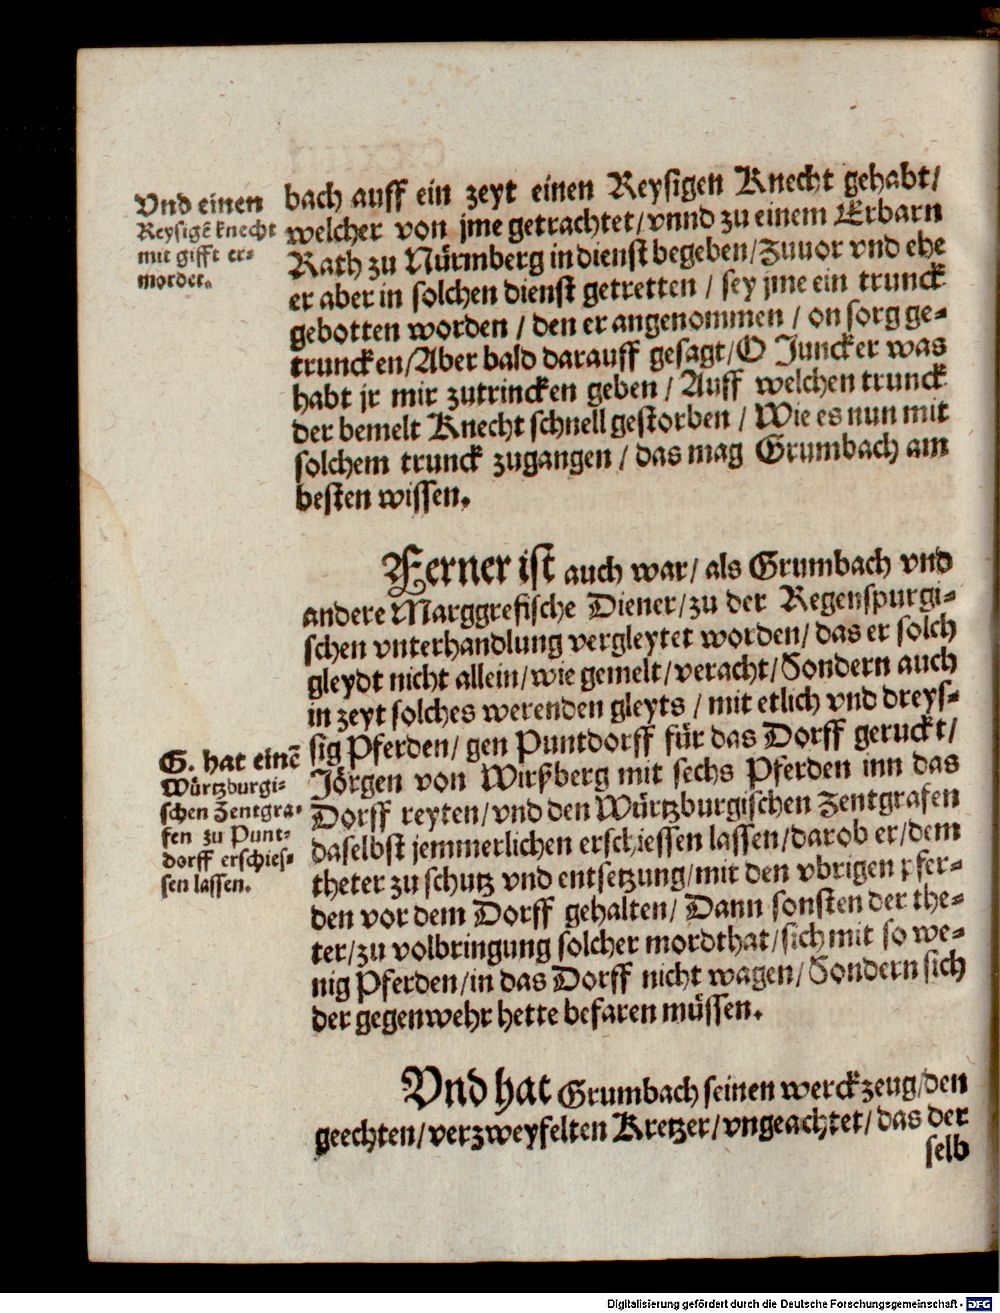 Vnd einen
Reysigẽ knecht
mit gifft er-
mordet.
bach auff ein zeyt einen Reysigen Knecht gehabt/
welcher von jme getrachtet/vnnd zu einem Erbarn
Rath zu Nürmberg in dienst begeben/Zuuor vnd ehe
er aber in solchen dienst getretten / sey jme ein trunck
gebotten worden / den er angenommen / on sorg ge-
truncken/Aber bald darauff gesagt/O Juncker was
habt jr mir zutrincken geben / Auff welchen trunck
der bemelt Knecht schnell gestorben / Wie es nun mit
solchem trunck zugangen / das mag Grumbach am
besten wissen.
Ferner ist auch war/ als Grumbach vnd
andere Marggrefische Diener/zu der Regenspurgi-
schen vnterhandlung vergleytet worden/ das er solch
gleydt nicht allein/wie gemelt/veracht/Sondern auch
in zeyt solches werenden gleyts / mit etlich vnd dreys-
sig Pferden/ gen Puntdorff für das Dorff geruckt/
Jörgen von Wirßberg mit sechs Pferden inn das
Dorff reyten/vnd den Würtzburgischen Zentgrafen
daselbst jemmerlichen erschiessen lassen/darob er/dem
theter zu schutz vnd entsetzung/mit den vbrigen pfer-
den vor dem Dorff gehalten/ Dann sonsten der the-
ter/zu volbringung solcher mordthat/sich mit so we-
nig Pferden/in das Dorff nicht wagen/Sondern sich
der gegenwehr hette befaren müssen.
G. hat einẽ
Würtzburgi-
schen Zentgra-
fen zu Punt-
dorff erschies-
sen lassen.
Vnd hat Grumbach seinen werckzeug/den
geechten/verzweyfelten Kretzer/vngeachtet/ das der
selb
Digitalisierung gefördert durch die Deutsche Forschungsgemeinschaft - DFG